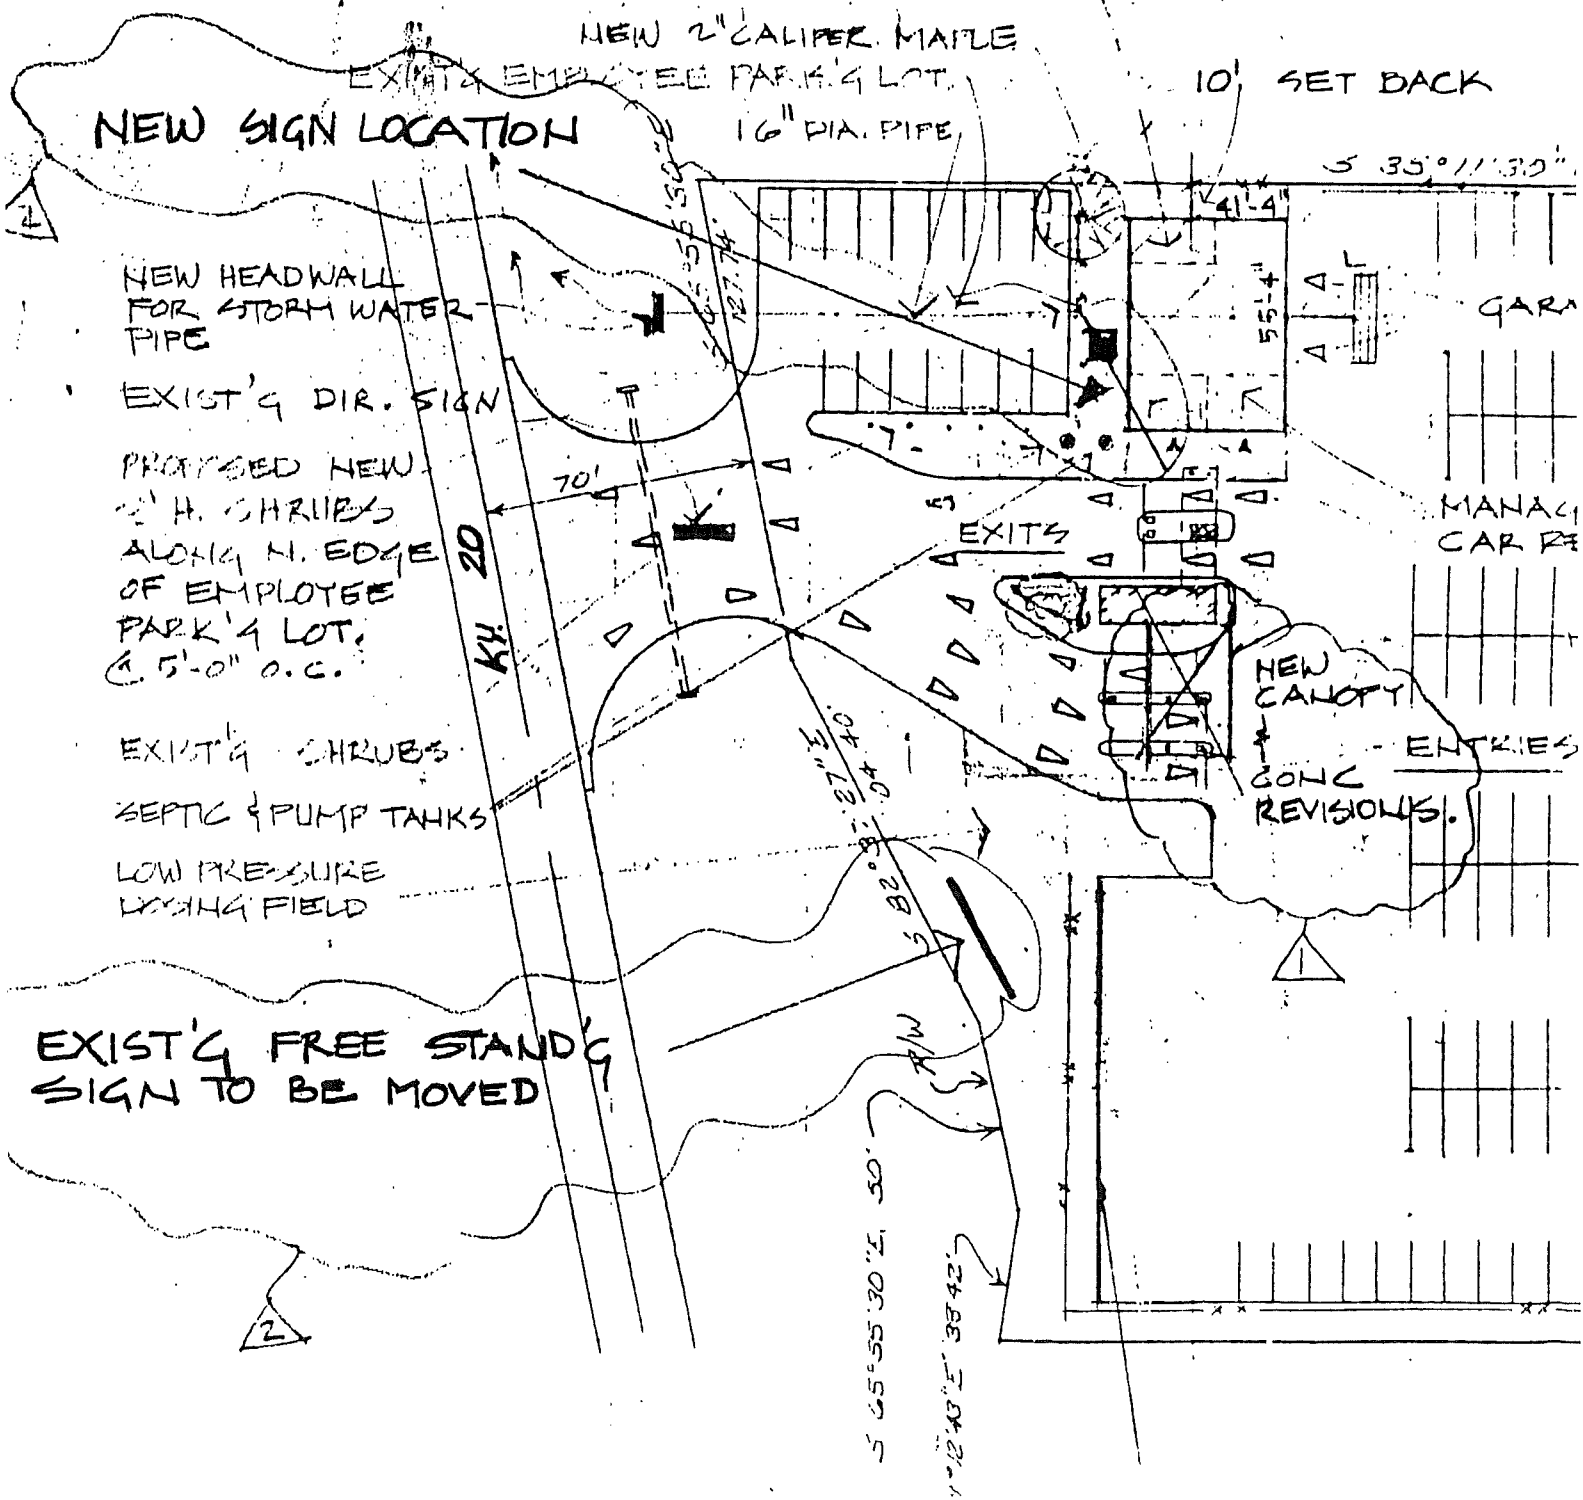 NEW 2" CALIPER MAPLE
EXIST'G EMPLOYEE PARK'G LOT.
10' SET BACK
NEW SIGN LOCATION
16" DIA. PIPE
2
41'-4"
127.74'
NEW HEADWALL
FOR STORM WATER
PIPE
55'-4"
EXIST'G DIR. SIGN
PROPOSED NEW
2' H. SHRUBS
ALONG N. EDGE
OF EMPLOYEE
PARK'G LOT.
@ 5'-0" O.C.
70'
KY. 20
EXITS
NEW
CANOPY
&
CONC
REVISIONS.
ENTRIES
EXIST'G SHRUBS
SEPTIC & PUMP TANKS
LOW PRESSURE
FIELD
1
EXIST'G FREE STAND'G
SIGN TO BE MOVED
R/W
S 65°55'30"E 50'
2